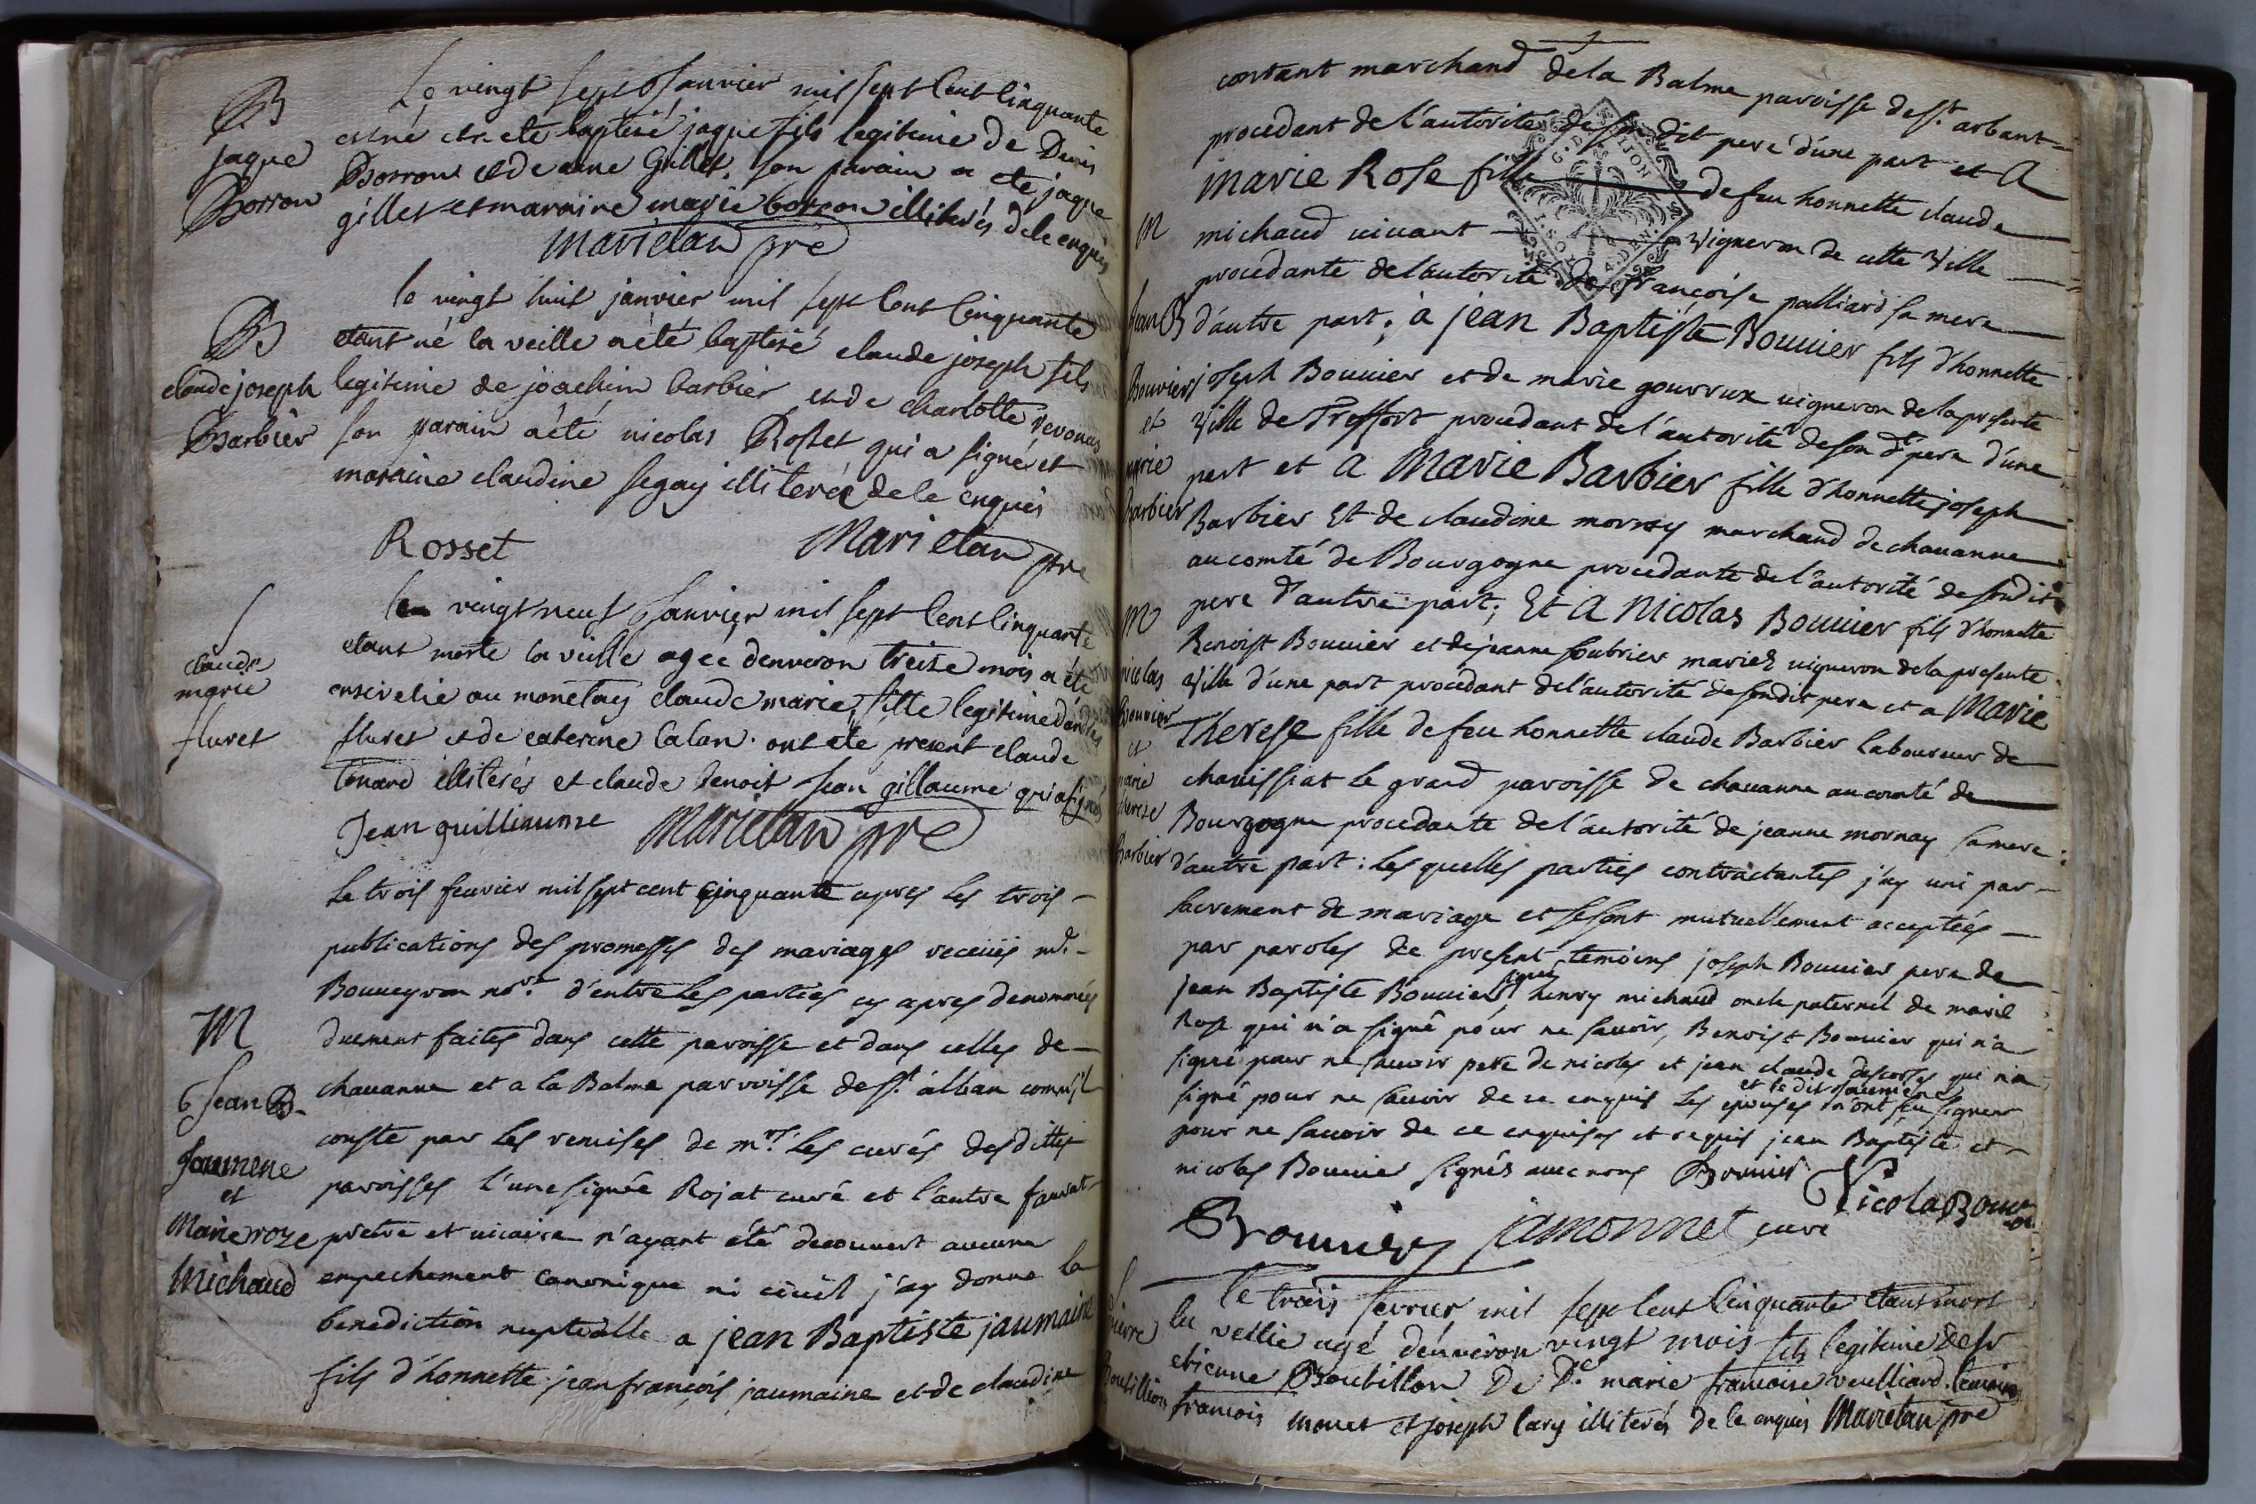 B
jaque
Borron
Le vingt sept Janvier mil sept Cent Cinquante
est né et a eté baptisé jaque fils legitime de Denis
Borron et de anne Gillet. son parain a eté jaque
gillet et maraine marie borron illiterés de le enquis
Marietan pre
B
claude joseph
Barbier
le vingt huit janvier mil sept Cent Cinquante
etant né la veille a eté baptisé claude joseph fils
legitime de joachim barbier et de charlotte revonas
son parain a eté nicolas Rosset qui a signé et
maraine claudine segay illiterée de le enquis
Rosset Marietan pre
S
claude
marie
fluret
le vingt neuf Janvier mil sept Cent Cinquante
etant morte la veille agee denviron treise mois a été
ensevelie au monetay claude marie fille legitime
fluret et de caterine Calan. ont eté present claude
tenard illiterés et claude benoit Jean gillaume qui a signé
Jean guilliaume Marietan pre
M
6 Jean B.
Joumene
et
Marie roze
Michaud
Le trois fevrier mil sept cent cinquante apres les trois
publications des promesses des mariages receües me
Bouveyron nore. d'entre Les parties cy apres denommées
duement faites dans cette paroisse et dans celles de
chavanne et a la Balme parroisse de st. alban comm'il
conste par Les remises de mrs. Les curés des dittes
paroisses l'une signée Rojat curé et l'autre favrat
pretre et vicaire n'ayant été decouvert aucune
empechement canonique ni civil j'ay donné la
benediction nuptialle a jean Baptiste jaumaine
fils d'honnette jean françois jaumaine et de claudine
contant marchand de la Balme paroisse de st. arbant
procedant de l'autorité de son dit pere d'une part et A
Marie Rose fille de feu honnette claude
michaud vivant vigneron de cette ville
procedante de l'autorité de françoise palliard sa mere
d'autre part; à jean Baptiste Bouvier fils d'honnette
joseph Bouvier et de marie gourrux vigneron de la presente
ville de Treffort procedant de l'autorité de son dt pere d'une
part et A Marie Barbier fille d'honnette joseph
Barbier Et de claudine mornay marchand de chavanne
au comté de Bourgogne procedante de l'autorité de sondit
pere d'autre part; Et A Nicolas Bouvier fils d'honnette
Benoist Bouvier et de jeanne soubrier mariez vigneron de la presente
ville d'une part procedant de l'autorité de sondit pere et a Marie
Therese fille de feu honnette claude Barbier Laboureur de
chavissiat le grand paroisse de chavanne au comté de
Bourgogne procedante de l'autorité de jeanne mornay sa mere
d'autre part: Les quelles parties contractantes j'ay uni par
sacrement de mariage et se sont mutuellement acceptées
par paroles de present, temoins joseph Bouvier pere de
jean Baptiste Bouvier signez, henry michaud oncle paternel de marie
Rose qui n'a signé pour ne sçavoir, Benoist Bouvier qui n'a
signé pour ne sçavoir pere de nicolas et jean claude descorses qui n'a
signé pour ne sçavoir de ce enquis Les epouses et le dit jaumene n'ont sçu signer
pour ne sçavoir de ce enquises et requis jean Baptiste et
nicolas Bouvier signés avec nous Bouvier Nicola Bouvier
Bouvier jamonnet curé
M
Jean B
Bouvier
et
marie
barbier
M
nicolas
Bouvier
et
marie
therese
barbier
Pierre
Boutillion
le trois fevrier mil sept Cent Cinquante etant mort
la veille agé d'environ vingt mois fils legitime de sr
etienne Boutillon De De. marie francoise veulliard. temoins
francois monet et joseph lary illiterés de le enquis Marietan pre